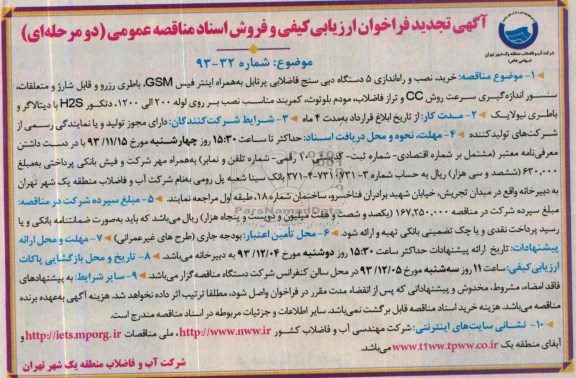 آگهی تجدید فراخوان ارزیابی کیفی و فروش اسناد مناقصه عمومی (دو مرحله‌ای)
شرکت آب و فاضلاب منطقه یک شهر تهران
(سهامی خاص)
موضوع: شماره ۳۲-۹۳
۱- موضوع مناقصه: خرید، نصب و راه‌اندازی ۵ دستگاه دبی سنج فاضلابی پرتابل به‌همراه اینتر فیس GSM، باطری رزرو و قابل شارژ و متعلقات،
سنسور اندازه‌گیری سرعت روش CC و تراز فاضلاب، موده بلوتوث، کمربند مناسب نصب بر روی لوله ۲۰۰ الی ۱۲۰۰، دتکتور H2S با دیتالاگر و
باطری نیولایک ۲- مدت کار: از تاریخ ابلاغ قرارداد به‌مدت ۴ ماه ۳- شرایط شرکت‌کنندگان: دارای مجوز تولید و یا نمایندگی رسمی از
شرکت‌های تولیدکننده ۴- مهلت، نحوه و محل دریافت اسناد: حداکثر تا ساعت ۱۵:۳۰ روز چهارشنبه مورخ ۹۳/۱۱/۱۵ با در دست داشتن
معرفی‌نامه معتبر (مشتمل بر شماره اقتصادی- شماره ثبت- کدپستی ۱۰ رقمی- شماره تلفن و نمابر) به‌همراه مهر شرکت و فیش بانکی پرداختی به‌مبلغ
۶۳۰,۰۰۰ (ششصد و سی هزار) ریال به حساب شماره ۳-۷۳۱-۴-۳۷۱ بانک سینا شعبه پل رومی به‌نام شرکت آب و فاضلاب منطقه یک شهر تهران
به دبیرخانه واقع در میدان تجریش، خیابان شهید برادران فناخسرو، ساختمان شماره ۱۸، طبقه اول مراجعه نمایند. ۵- مبلغ سپرده شرکت در مناقصه:
مبلغ سپرده شرکت در مناقصه ۱۶۷,۲۵۰,۰۰۰ (یکصد و شصت و هفت میلیون و دویست و پنجاه هزار) ریال می‌باشد که باید به‌صورت ضمانتنامه بانکی و یا
رسید پرداخت نقدی و یا چک تضمینی بانکی تهیه و ارائه شود. ۶- محل تأمین اعتبار: بودجه جاری (طرح های غیرعمرانی) ۷- مهلت و محل ارائه
پیشنهادات: تاریخ ارائه پیشنهادات حداکثر ساعت ۱۵:۳۰ روز دوشنبه مورخ ۹۳/۱۲/۰۴ به دبیرخانه می‌باشد. ۸- تاریخ و محل بازگشایی پاکات
ارزیابی کیفی: ساعت ۱۱ روز سه‌شنبه مورخ ۹۳/۱۲/۰۵ در محل سالن کنفرانس شرکت دستگاه مناقصه‌گزار می‌باشد. ۹- سایر شرایط: به پیشنهادهای
فاقد امضاء، مشروط، مخدوش و پیشنهاداتی که پس از انقضاء مدت مقرر در فراخوان واصل شود، مطلقا ترتیب اثر داده نخواهد شد. هزینه آگهی به‌عهده برنده
مناقصه می‌باشد. هزینه خرید اسناد مناقصه قابل برگشت نمی‌باشد. سایر اطلاعات و جزئیات مربوطه در اسناد مناقصه مندرج است.
۱۰- نشانی سایت‌های اینترنتی: شرکت مهندسی آب و فاضلاب کشور http://www.nww.ir، ملی مناقصات http://iets.mporg.ir و
آبفای منطقه یک www.t1ww.tpww.co.ir می‌باشد.
شرکت آب و فاضلاب منطقه یک شهر تهران